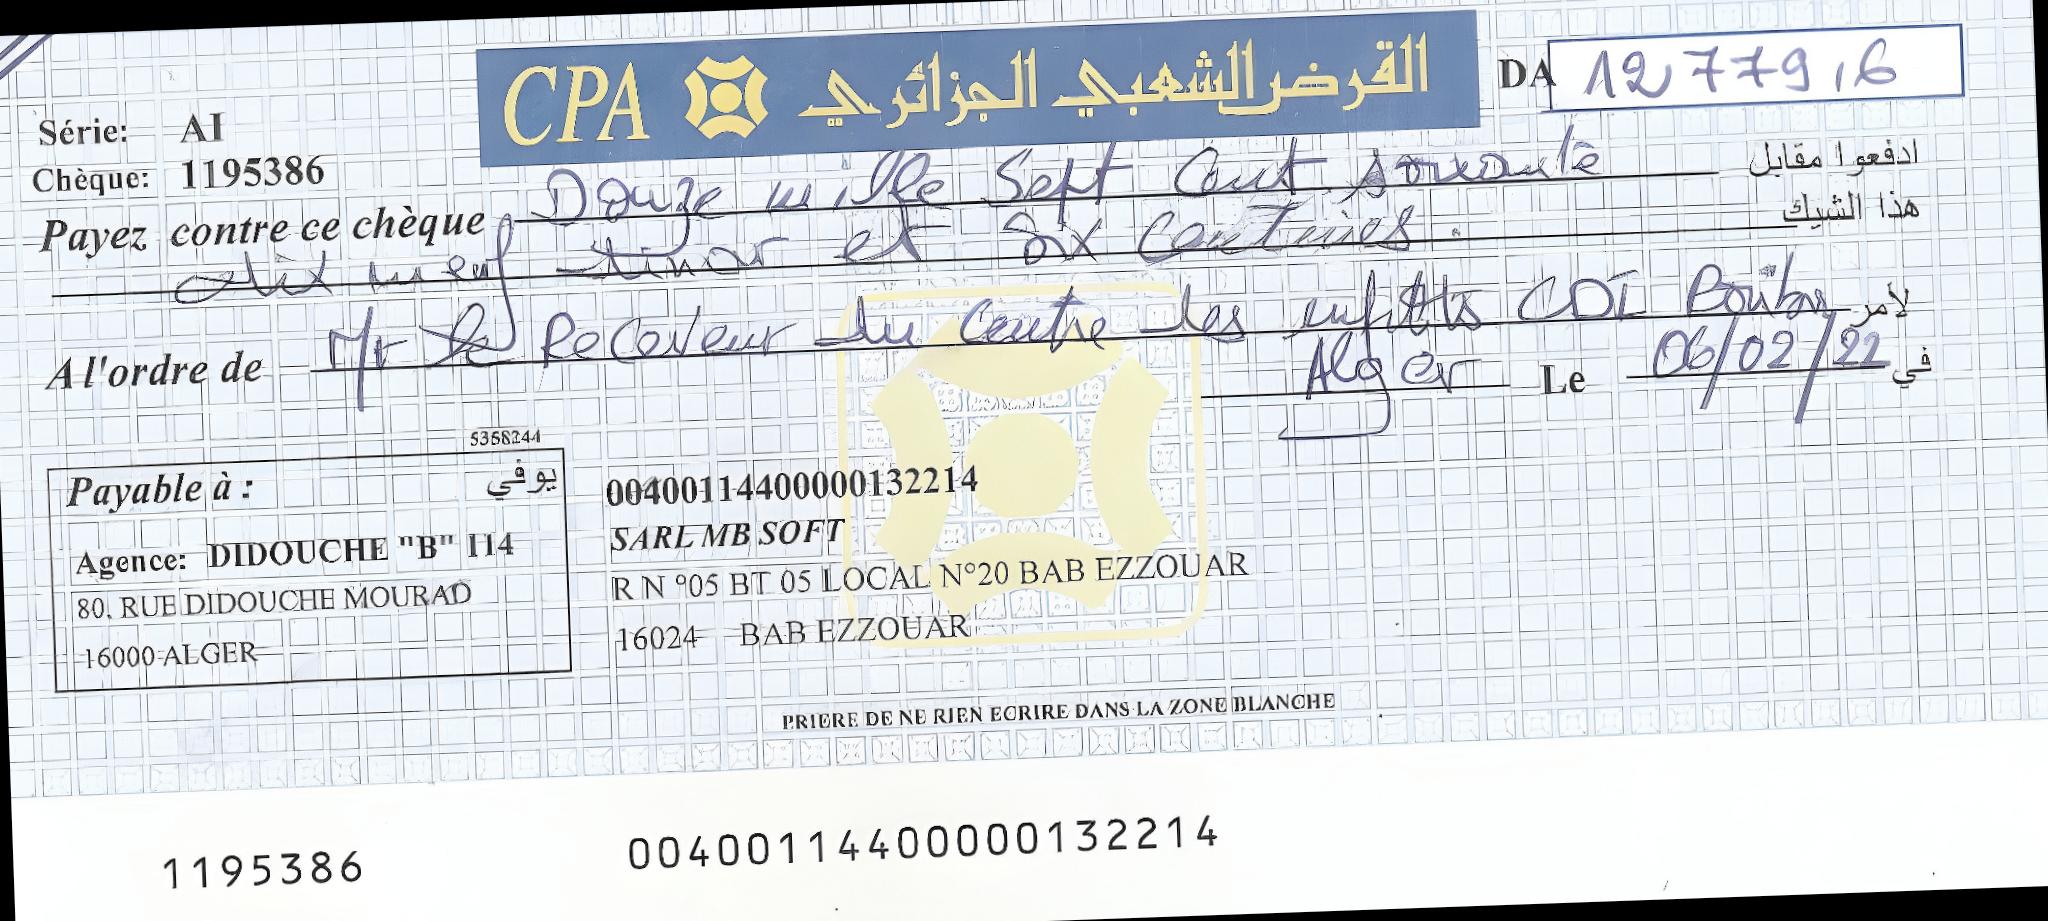 CPA القرض الشعبي الجزائري
DA 12779,6
Série: AI
Chèque: 1195386
ادفعوا مقابل
هذا الشيك
Payez contre ce chèque Douze mille Sept Cent soixante
dix neuf dinar et Six Centimes.
A l'ordre de Mr le Receveur du Centre des impôts CDI لأمر
Alger Le 06/02/22 في
5358244
Payable à : يوفي
Agence: DIDOUCHE "B" 114
80, RUE DIDOUCHE MOURAD
16000 ALGER
00400114400000132214
SARL MB SOFT
R N °05 BT 05 LOCAL N°20 BAB EZZOUAR
16024 BAB EZZOUAR
PRIERE DE NE RIEN ECRIRE DANS LA ZONE BLANCHE
1195386 00400114400000132214